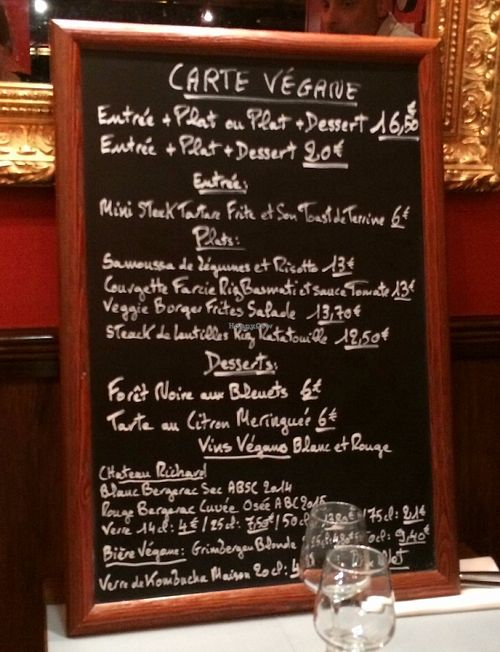 CARTE VÉGANE
Entrée + Plat ou Plat + Dessert 16,50€
Entrée + Plat + Dessert 20€
Entrée:
Mini Steck Tartare Frite et Son Toast de Terrine 6€
Plats:
Samoussa de légumes et Risotto 13€
Courgette Farcie Riz Basmati et sauce Tomate 13€
Veggie Borger Frites Salade 13,70€
HappyCow
Steack de Lentilles Riz, Ratatouille 12,50€
Desserts:
Forêt Noire aux Bleuets 6€
Tarte au Citron Meringuée 6€
Vins Végans Blanc et Rouge
Chateau Richard
Blanc Bergerac Sec ABSC 2014
Rouge Bergerac Cuvée Osée ABC 2015
Verre 14cl: 4€ / 25cl: 7,50€ / 50cl / 75cl: 21€
Bière Végane: Grimbergen Blonde 50cl: 9,40€
Verre de Kombucha Maison 20cl: 4